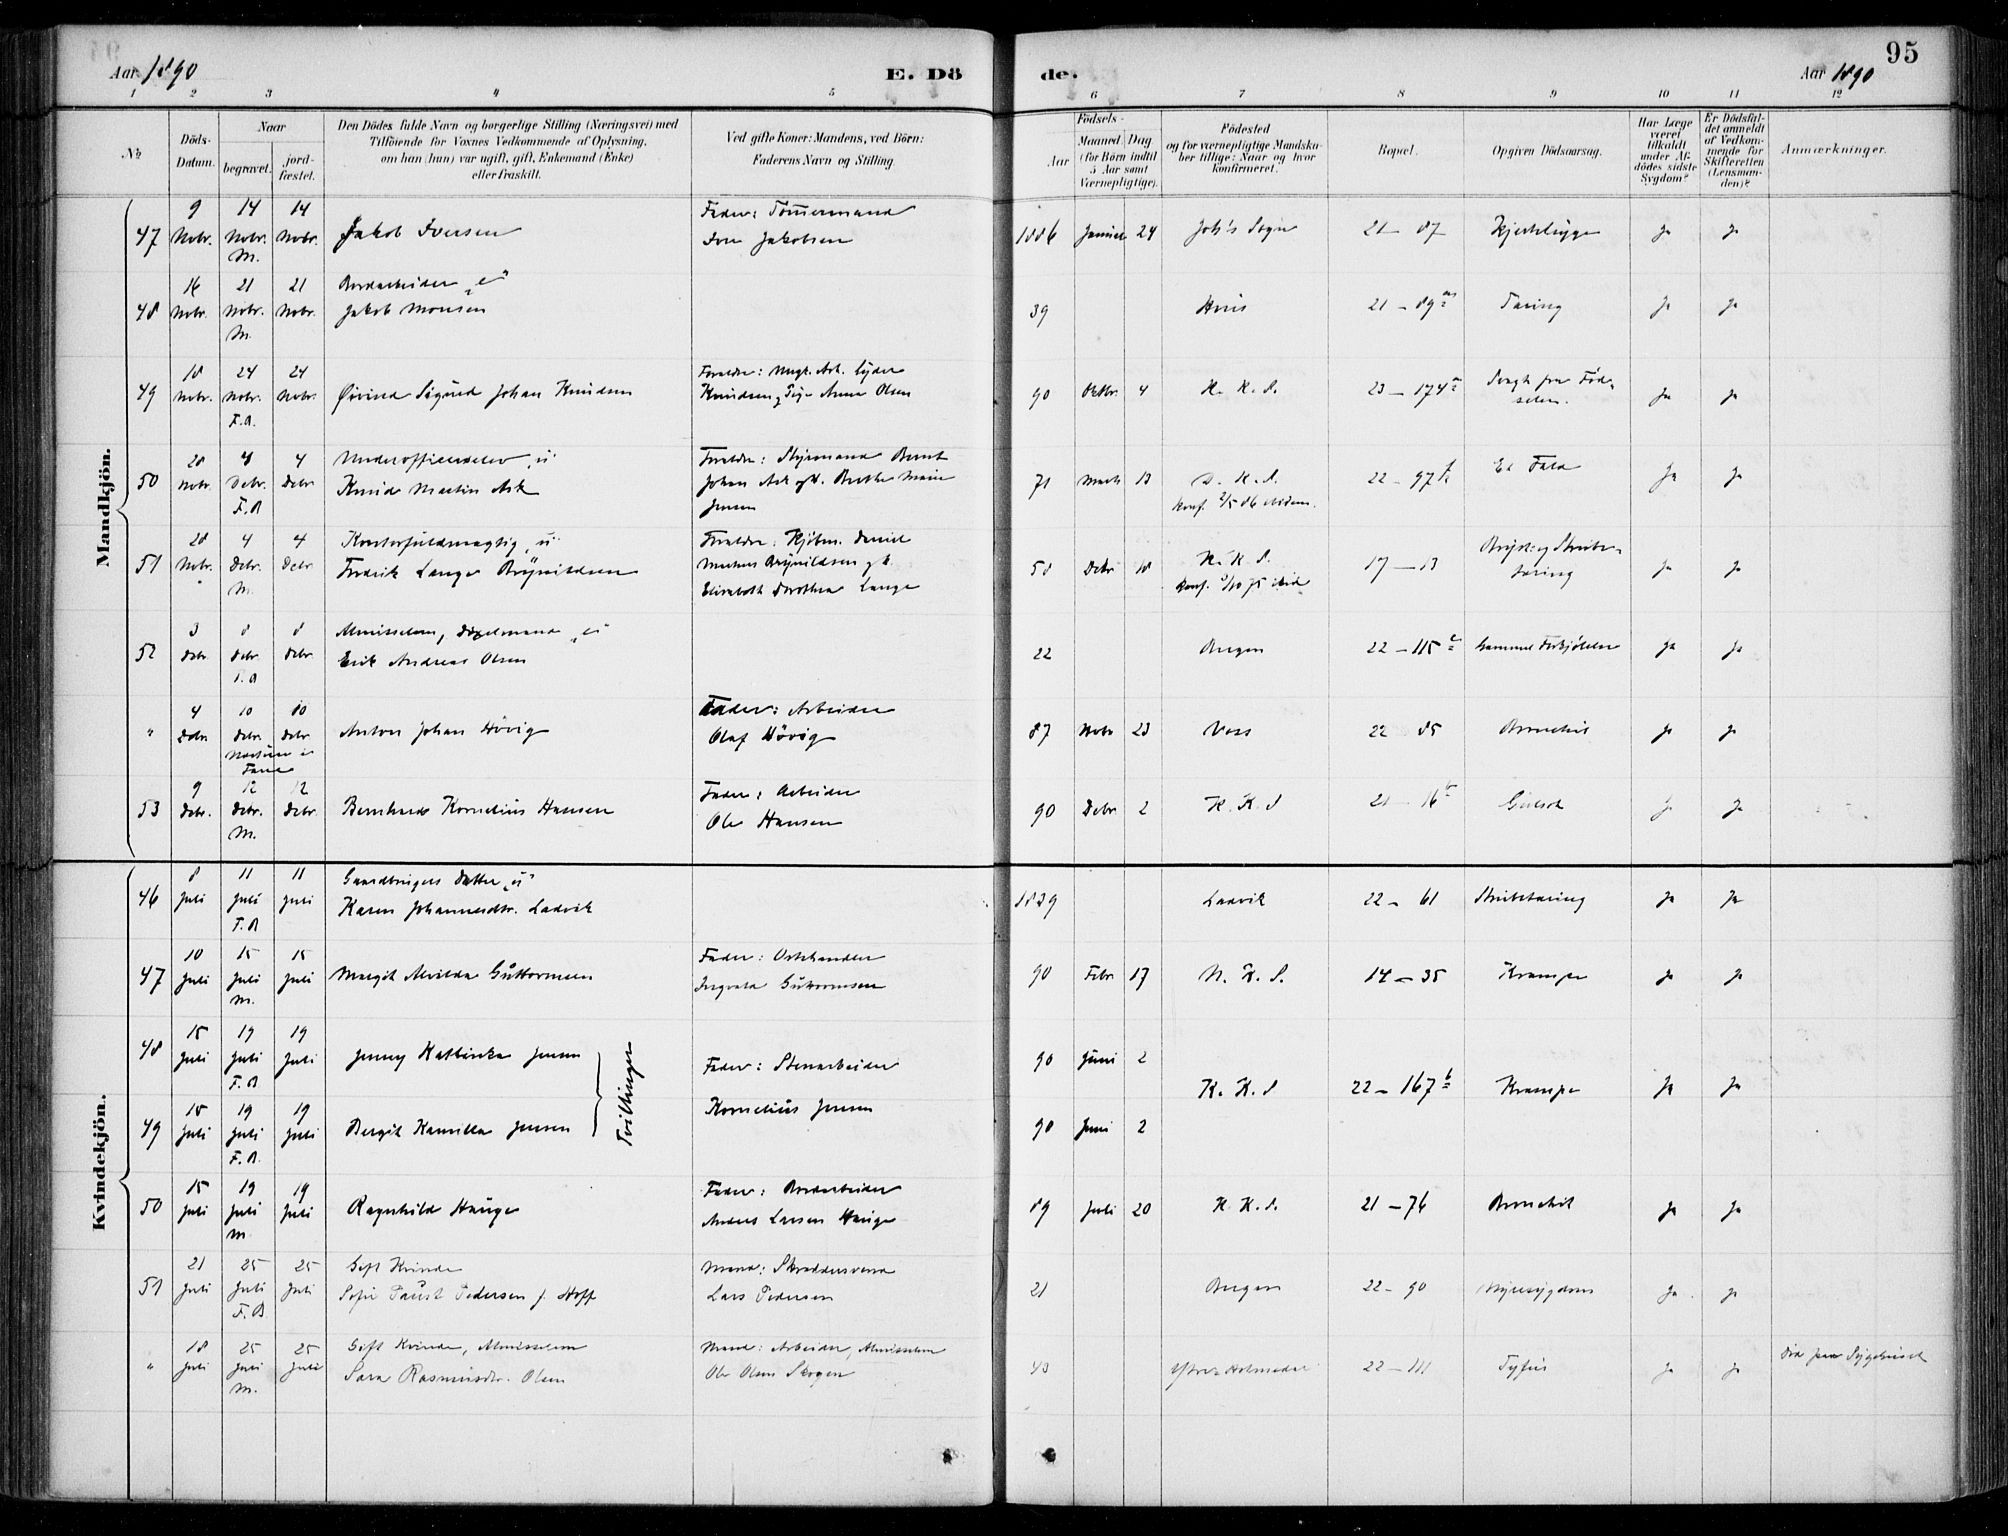 95
Aar 1890
E. Dö
de.
Aar 1890
1 2 3 4 5 6 7 8 9 10 11 12
№
Döds-Datum.
Naar
begravet.
jord-fæstet.
Den Dödes fulde Navn og borgerlige Stilling (Næringsvei) med
Tilföiende for Voxnes Vedkommende af Oplysning,
om han (hun) var ugift, gift, Enkemand (Enke)
eller fraskilt.
Ved gifte Koner: Mandens, ved Börn:
Faderens Navn og Stilling
Födsels-
Aar
Maaned Dag
(for Börn indtil
5 Aar samt
Værnepligtige).
Födested
og for værnepligtige Mandska-
ber tillige: Naar og hvor
konfirmeret.
Bopæl.
Opgiven Dödsaarsag.
Har Læge
været
tilkaldt
under Af-
dödes sidste
Sygdom?
Er Dödsfal-
det anmeldt
af Vedkom-
mende for
Skifteretten
(Lensman-
den)?
Anmærkninger.
Mandkjön.
47 9 Novbr. 14 Novbr. M. 14 Novbr. Jakob Iversen Fader: Tömmermand Iver Jakobsen 1886 Januar 24 Joh's Sogn 21 - 87 ja ja
48 16 Novbr. 21 Novbr. M. 21 Novbr. Bordarbeider "e" Jakob Monsen 39 Hvis 21 - 89 Tæring ja ja
49 18 Novbr. 24 Novbr. F.A. 24 Novbr. Öivind Sigurd Johan Knudsen Forældre: Ungk. Arb. Lyder Knudsen & Pige Anna Olsen 90 Octbr. 4 K. K. S. 23 - 174 Svagh. fra Föd-selen. ja ja
50 28 Novbr. 4 Debr. F.A 4 Debr Underofficerselev "u" Knud Martin Ask Forældre: Styrmand Bernt Johan Ask og H. Berthe Marie Jensen 71 Marts 13 D. K. S. Konf. 2/5 86 ibidem. 22 - 97 Et Fald ja ja
51 28 Novbr. 4 Debr. M. 4 Debr Kontorfuldmægtig "u" Fredrik Lange Brynildsen Forældre: Kjöbm. Daniel Brynildsen og h. Elisabeth Dorothea Lange 58 Debr 18 K. K. S. Konf. 75 ibid 17 - 13 Bryst- og Strube-tæring ja ja
52 3 Debr 8 Debr F.A 8 Debr Almisselem, "e" Erik Andreas Olsen 22 Bergen 22 - 115 Gammel Forkjölelse ja ja
" 4 Debr 10 Debr. Fane 10 Debr. Anton Johan Hövig Fader: Arbeider Olaf Hövig 87 Novbr 23 Voss 22 85 Bronchit ja ja
53 9 Debr. 12 Debr. M. 12 Debr. Bernhard Kornelius Hansen Fader: Arbeider Ole Hansen 90 Debr 2 K. K. S 21 - 16 Gulsot ja ja
Kvindekjön.
46 8 Juli 11 Juli F.A 11 Juli Gaardbrugers Datter "u" Karen Johannesdtr. Ladvik 1829 Ladvik 22 - 61 Strubetæring ja ja
47 10 Juli 15 Juli M. 15 Juli Margit Alvilda Guttormsen Fader: Ostehandler Ingvald Guttormsen 90 Febr 17 N. K. S. 14 - 35 Krampe ja ja
48 15 Juli 19 Juli F.A 19 Juli Jenny Kathinka Jensen 90 Juni 2
Tvillinger
Fader: Stenarbeider Kornelius Jensen K. K. S 22 - 167 b Krampe ja ja
49 15 Juli 19 Juli F.A. 19 Juli Bergit Kamilla Jensen 90 Juni 2
50 15 Juli 19 Juli M. 19 Juli Ragnhild Hauge Fader: Bordarbeider Anders Larsen Hauge 89 Juli 20 K. K. S. 21 - 76 Bronchit ja ja
51 21 Juli 25 Juli F.A. 25 Juli Gift Kvinde Sofie Faust Pedersen f. Hoff Mand: Skræddersvend Lars Pedersen 21 Bergen 22 - 90 Nyresygdom ja ja
" 18 Juli 25 Juli M. 25 Juli Gift Kvinde, Almisselem Sara Rasmusdtr. Olsen Mand: Arbeider, Almisselem Ole Olsen Skogen 43 Ytre Holmedal 22 - 111 Tyfus ja ja Död paa Sygehuset